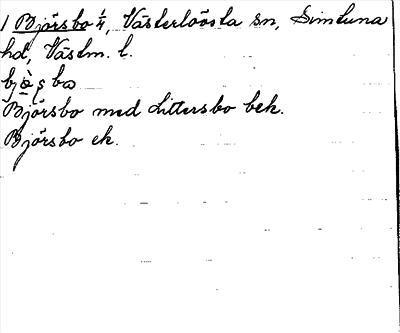 1 Bjórsbo 1/4, Västerlövsta sn, Simtuna
hd, Västm. l.
Björsbo med Littersbo bek.
Björsbo ek.